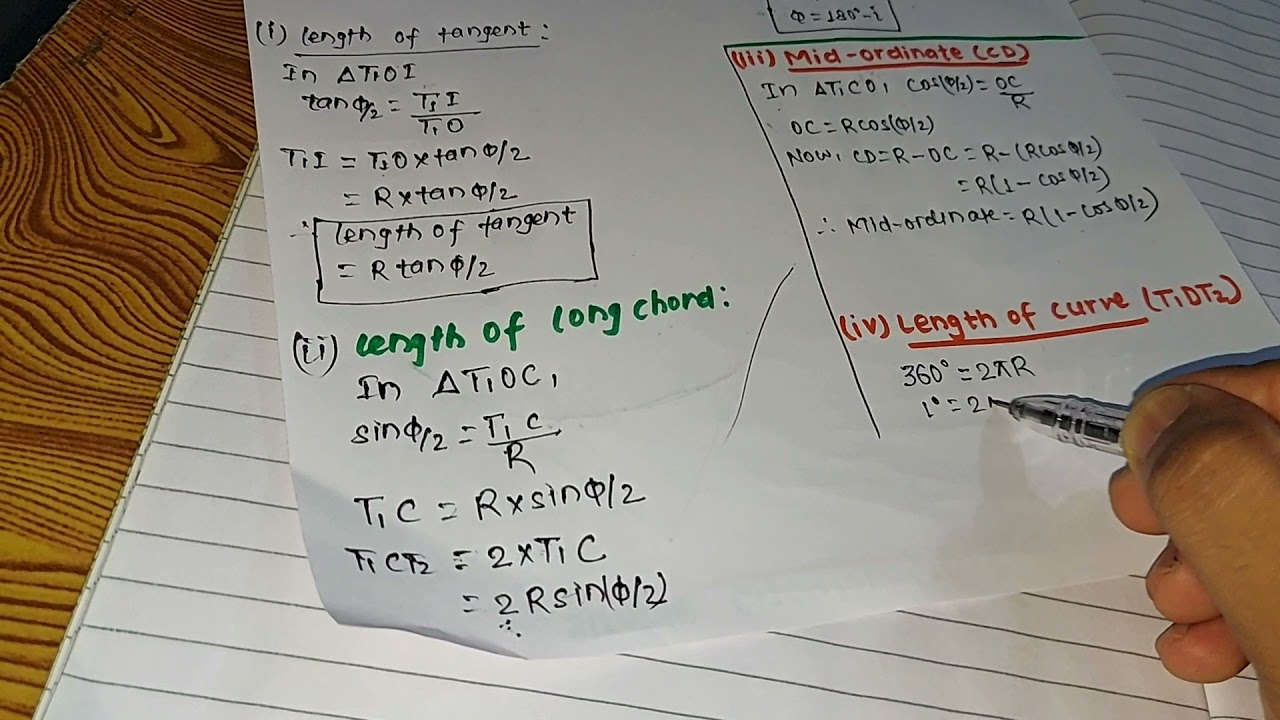 (i) Length of tangent:
In ΔT₁OI
tanΦ/2 = T₁I/T₁O
T₁I = T₁O×tanΦ/2
= R×tanΦ/2
∴ Length of tangent
= R tanΦ/2
(ii) Length of Long chord:
In ΔT₁OC,
sinΦ/2 = T₁C/R
T₁C = R×sinΦ/2
T₁CT₂ = 2×T₁C
= 2Rsin(Φ/2)
Φ=180°-i
(iii) Mid-ordinate (CD)
In ΔT₁CO, cos(Φ/2)=OC/R
OC=Rcos(Φ/2)
Now, CD=R-OC=R-(RcosΦ/2)
=R(1-cosΦ/2)
∴ Mid-ordinate=R(1-cosΦ/2)
(iv) Length of curve (T₁DT₂)
360°=2πR
1°=2